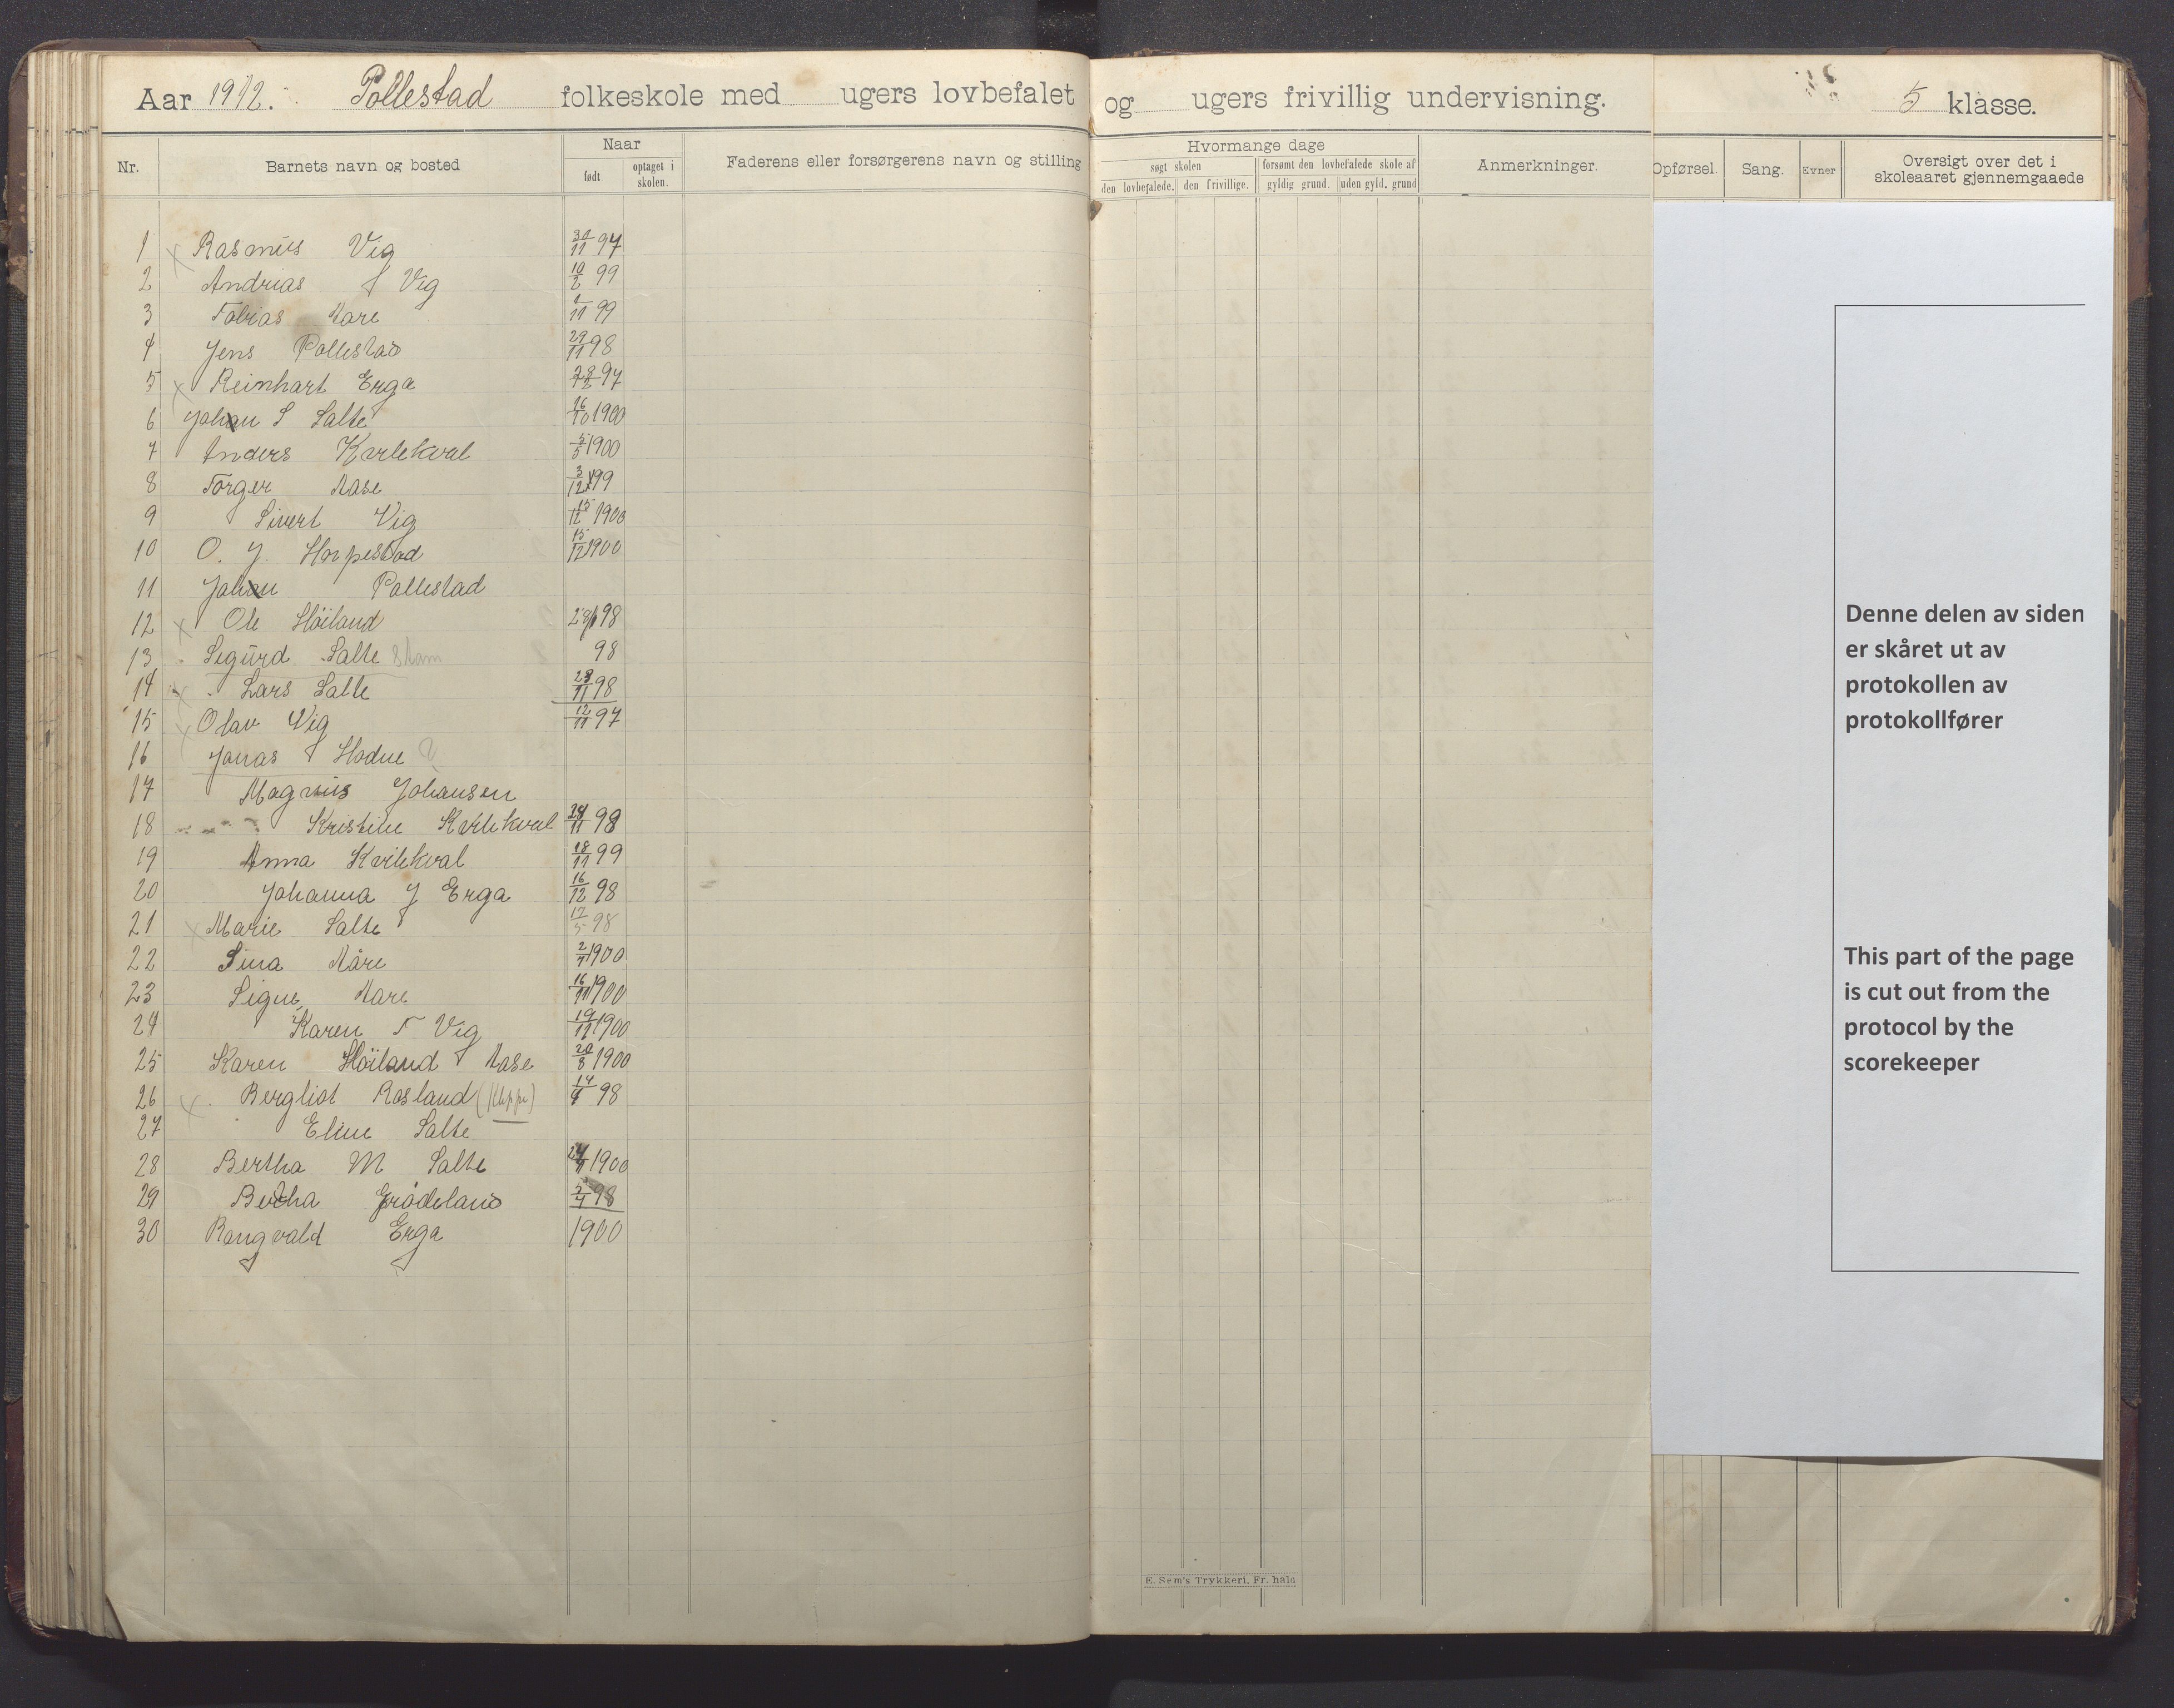 Aar 1912. Pollestad folkeskole med ugers lovbefalet og ugers frivillig undervisning. 5 klasse.
Nr. Barnets navn og bosted Naar født optaget i skolen. Faderens eller forsørgerens navn og stilling Hvormange dage søgt skolen den lovbefalede. den frivillige. forsømt den lovbefalede skole af gyldig grund. uden gyld. grund Anmerkninger. Opførsel. Sang. Evner Oversigt over det i skoleaaret gjennemgaaede
1 x Rasmus Vig 30/11 97
2 Andrias Vig 10/2 99
3 Tobias Aare /11 99
4 Jens Pollestad 29/11 98
5 x Reinhart Erga 28/12 97
6 Johan S Salte 16/10 1900
7 Anders Kvilekval 5/5 1900
8 Torger Aase 3/12 99
9 Sivert Vig 15/12 1900
10 O. J. Horpestad 15/12 1900
11 Johan Pollestad
12 x Ole Höiland 28/1 98
13 Sigurd Salte 98
14 x Lars Salte 28/11 98
15 x Olav Vig 12/11 97
16 Jonas Hodne ?
17 Magnus Johansen
18 Kristine Kvilekval 24/11 98
19 Anna Kvilekval 18/11 99
20 Johanna J Erga 16/12 98
21 x Marie Salte 17/5 98
22 Sina Aare 2/7 1900
23 Signe Aare 16/11 1900
24 Karen T Vig 19/11 1900
25 Karen Höiland Aase 20/8 1900
26 x Bergliot Rosland (Kleppe) 14/9 98
27 Eline Salte
28 Bertha M Salte 24/ 1900
29 Bertha Grødeland 5/4 98
30 Rangvald Erga 1900
E. Sem's Trykkeri, Fr. hald
Denne delen av siden
er skåret ut av
protokollen av
protokollfører
This part of the page
is cut out from the
protocol by the
scorekeeper